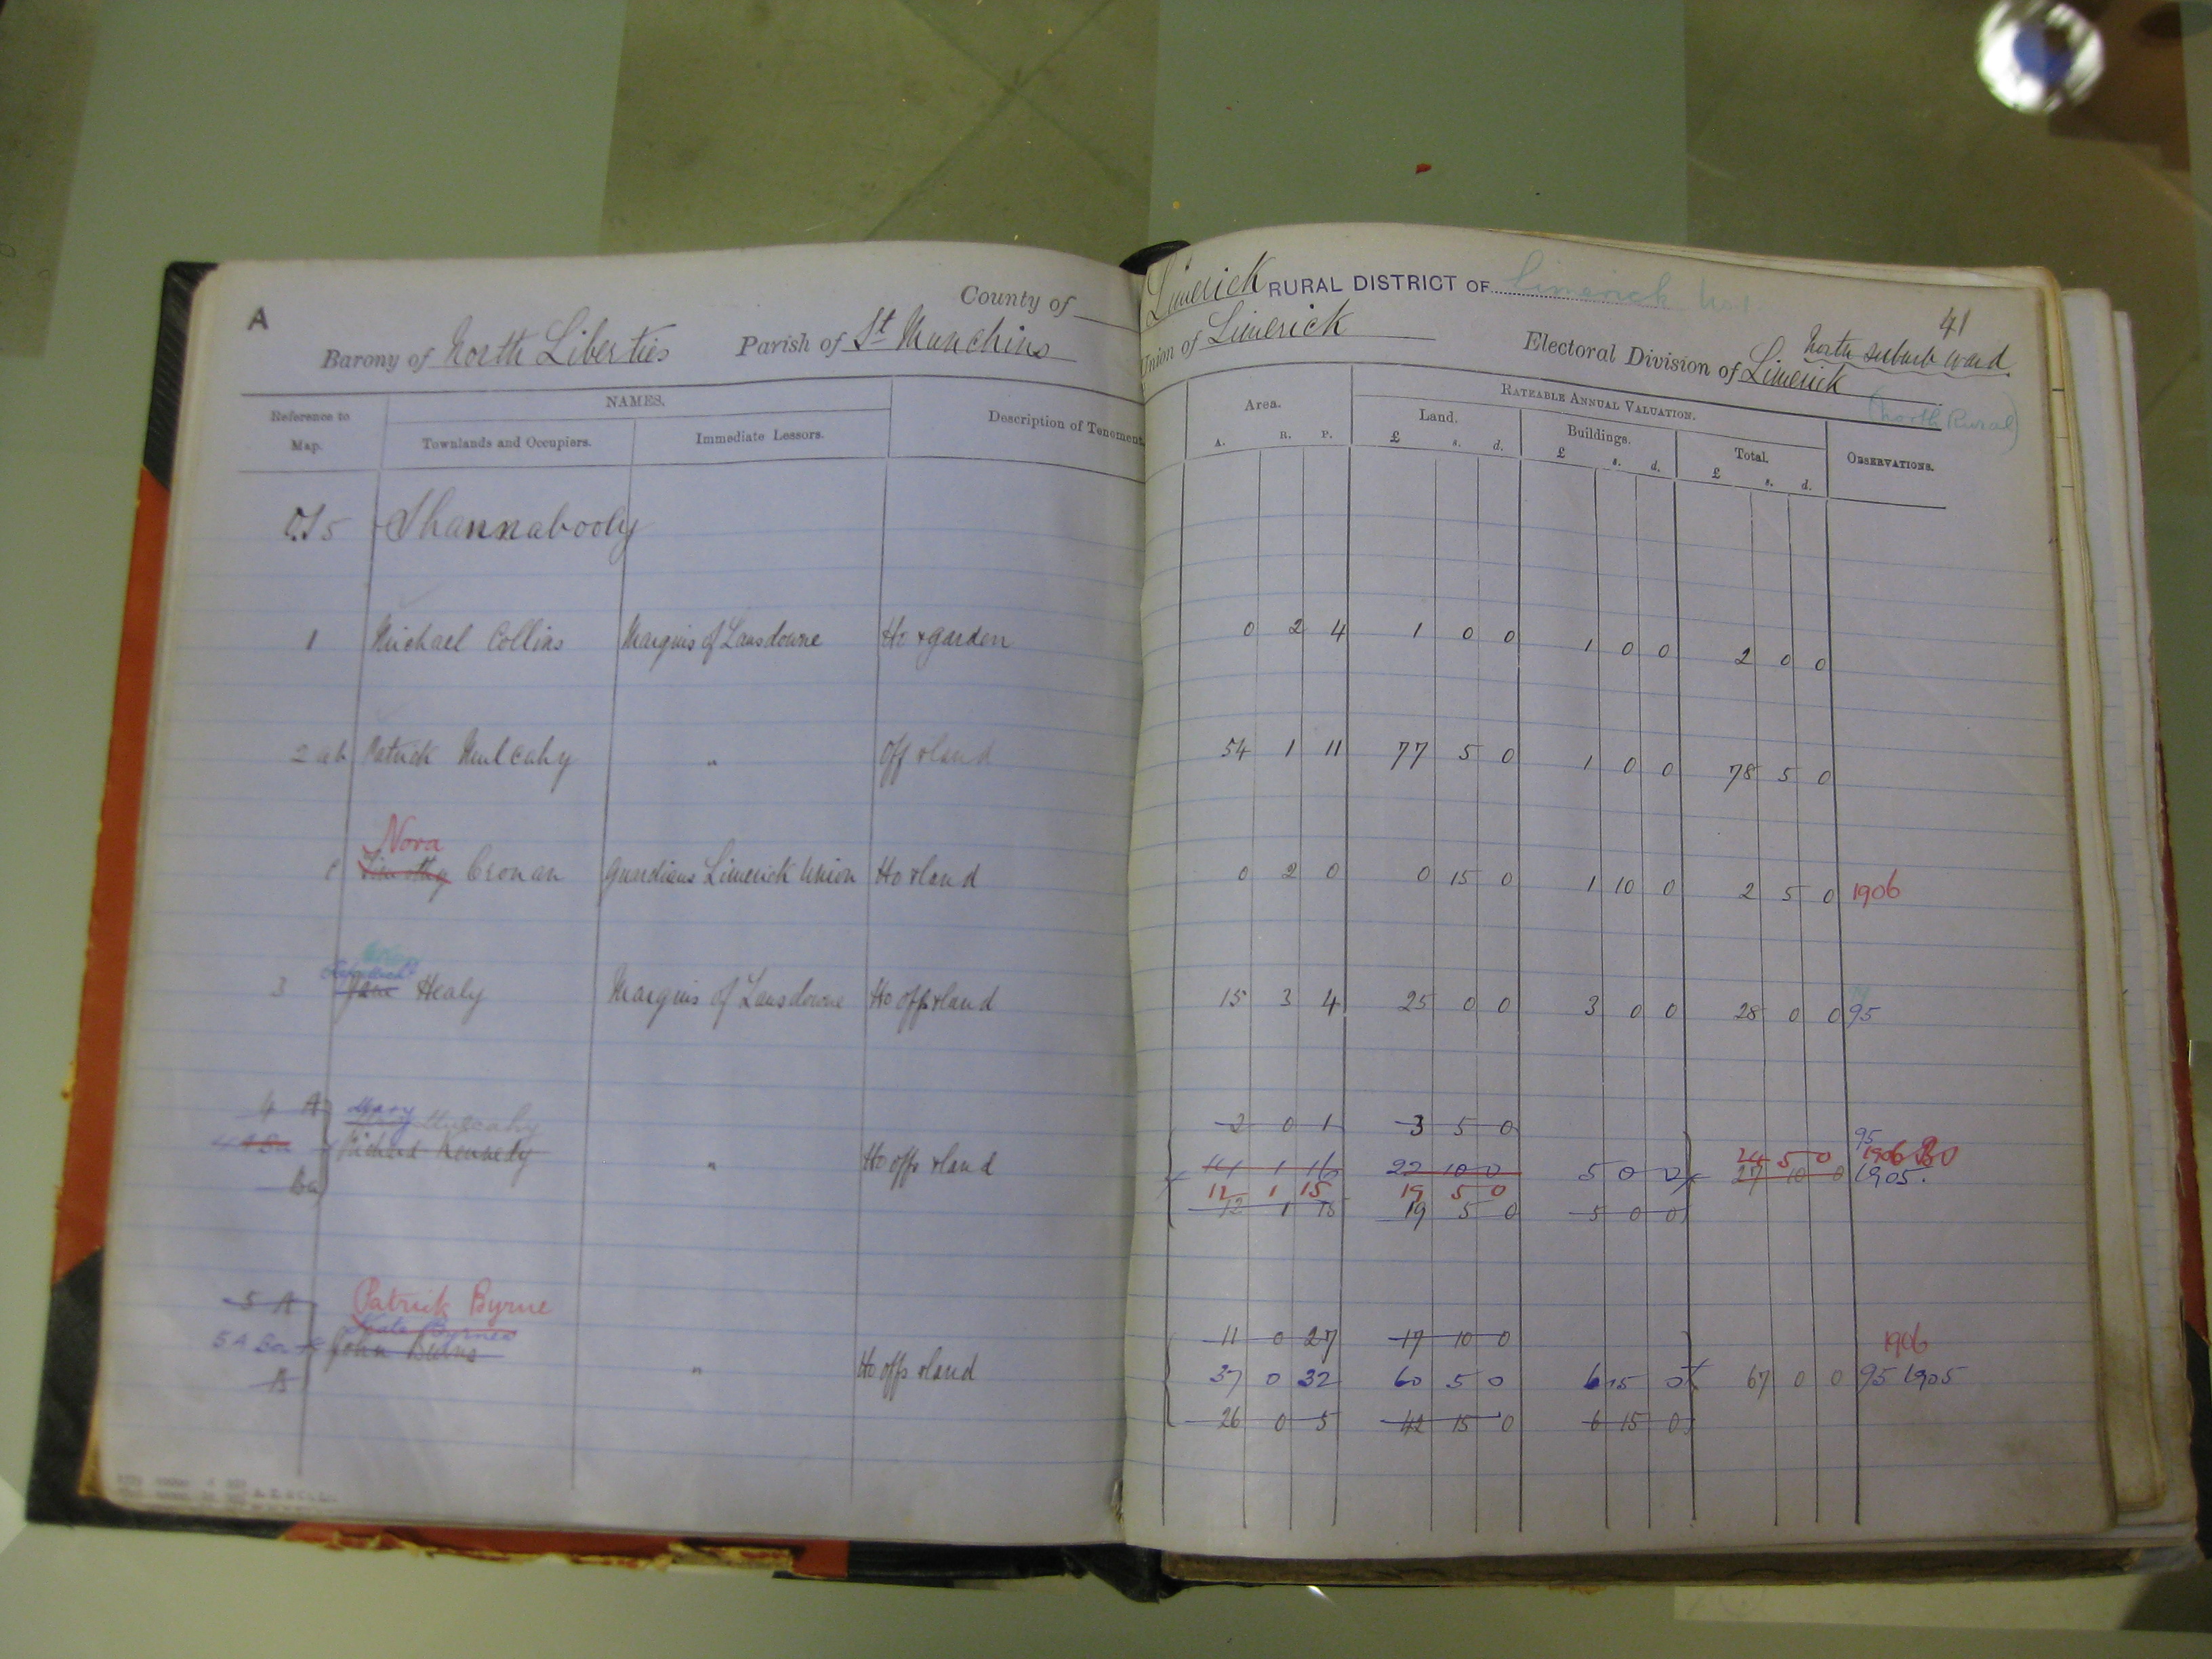 A
County of Limerick RURAL DISTRICT OF Limerick
41
Barony of North Liberties Parish of St Munchins Union of Limerick Electoral Division of Limerick North suburb ward
(North Rural)
Reference to Map. NAMES. Description of Tenement. Area. RATEABLE ANNUAL VALUATION. OBSERVATIONS.
Townlands and Occupiers. Immediate Lessors. A. R. P. Land. £ s. d. Buildings. £ s. d. Total. £ s. d.
O.S 5 Shannabooly
1 Michael Collins Marquis of Lansdowne Ho & garden 0 2 4 1 0 0 1 0 0 2 0 0
2 ab Patrick Mulcahy " Off & land 54 1 11 77 5 0 1 0 0 78 5 0
Nora
c Timothy Cronan Guardians Limerick Union Ho & land 0 2 0 0 15 0 1 10 0 2 5 0 1906
3 Jane Healy Marquis of Lansdowne Ho offs & land 15 3 4 25 0 0 3 0 0 28 0 0 95
4 A Mary Mulcahy 2 0 1 3 5 0
95
24 5 0 1906
4 A Ba Richard Kennedy " Ho offs & land 14 1 16 22 10 0 5 0 0 27 10 0 1905.
12 1 15 19 5 0
Ba 12 1 15 19 5 0 5 0 0
5 A Patrick Byrne
Kate Byrnes 11 0 27 17 10 0 1906
5 A Ba John Burns " Ho offs & land 37 0 32 60 5 0 6 15 0 67 0 0 95 1905
B 26 0 5 42 15 0 6 15 0